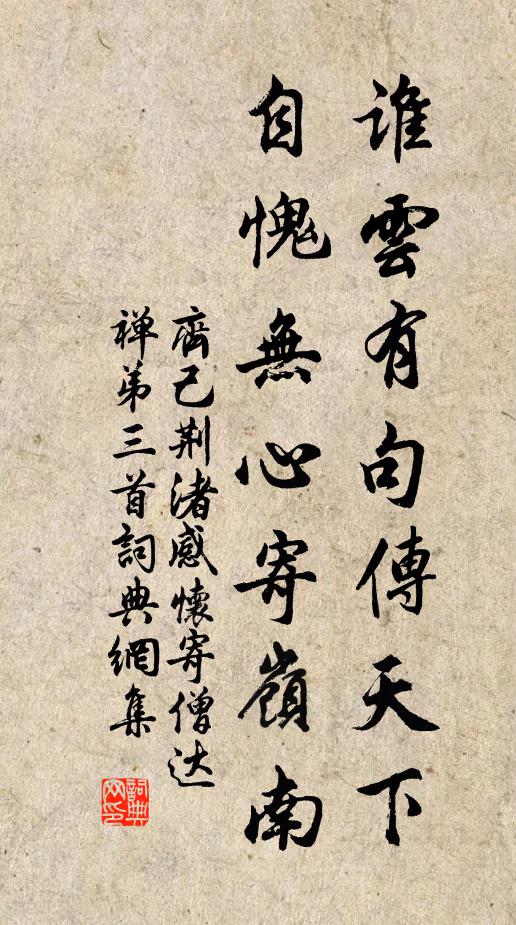 誰雲有句傳天下
自愧無心寄嶺南
齊己荆渚感懷寄僧达
禅弟三首詞典網集
詞典网印